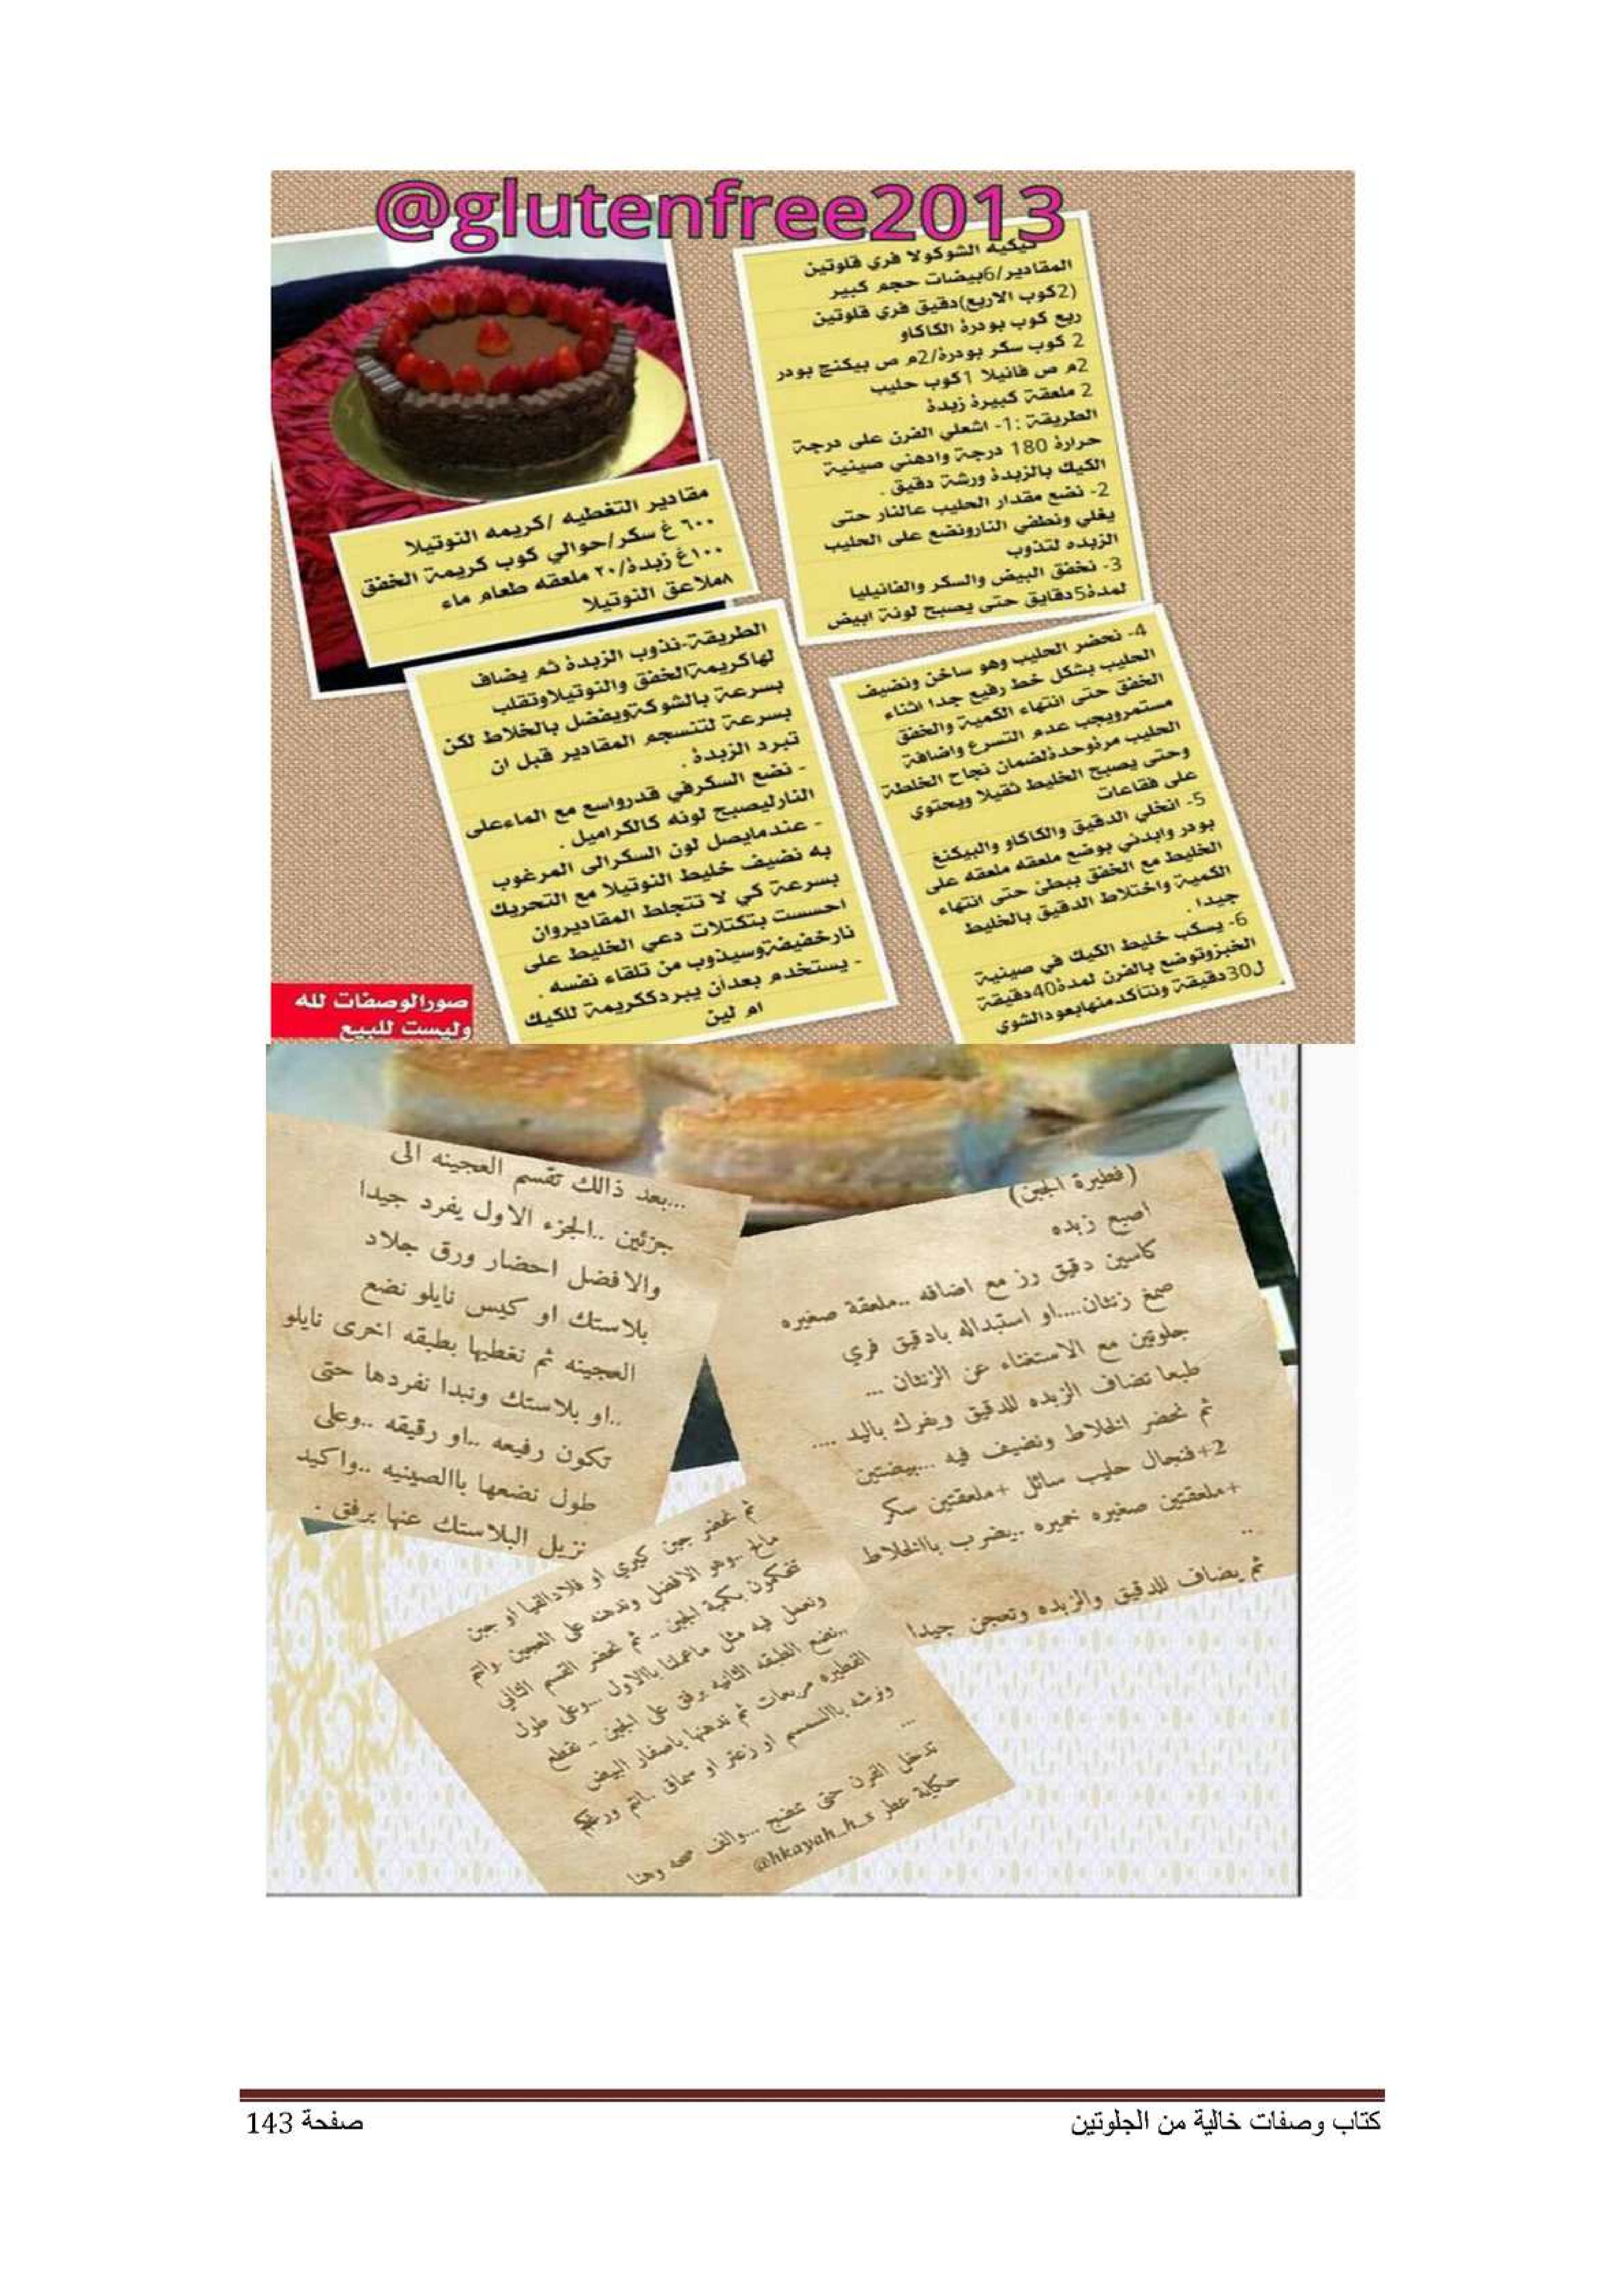 @glutenfree2013
كيكيه الشوكولا فري قلوتين
المقادير/6بيضات حجم كبير
(2كوب الاربع)دقيق فري قلوتين
ربع كوب بودرة الكاكاو
2 كوب سكر بودرة/2م ص بيكنج بودر
2م ص فانيلا 1كوب حليب
2 ملعقة كبيرة زبدة
الطريقة :1- اشعلي الفرن على درجة
حرارة 180 درجة وادهني صينية
الكيك بالزبدة ورشة دقيق .
2- نضع مقدار الحليب عالنار حتى
يغلي ونطفي النارونضع على الحليب
الزبده لتذوب
3- نخفق البيض والسكر والفانيليا
لمدة5دقايق حتى يصبح لونة ابيض
4- نحضر الحليب وهو ساخن ونضيف
الحليب بشكل خط رفيع جدا اثناء
الخفق حتى انتهاء الكمية والخفق
مستمرويجب عدم التسرع واضافة
الحليب مرةوحدةلضمان نجاح الخلطة
وحتى يصبح الخليط ثقيلا ويحتوي
على فقاعات
5- انخلي الدقيق والكاكاو والبيكنغ
بودر وابدئي بوضع ملعقه ملعقه على
الخليط مع الخفق ببطئ حتى انتهاء
الكمية واختلاط الدقيق بالخليط
جيدا .
6- يسكب خليط الكيك في صينية
الخبزوتوضع بالفرن لمدة40دقيقة
ل30دقيقة ونتأكدمنهابعودالشوي
مقادير التغطيه /كريمه النوتيلا
٦٠٠ غ سكر/حوالي كوب كريمة الخفق
١٠٠غ زبدة/٢٠ ملعقه طعام ماء
٨ملاعق النوتيلا
الطريقة-نذوب الزبدة ثم يضاف
لهاكريمةالخفق والنوتيلاوتقلب
بسرعة بالشوكةويفضل بالخلاط لكن
بسرعة لتنسجم المقادير قبل ان
تبرد الزبدة .
- نضع السكرفي قدرواسع مع الماءعلى
النارليصبح لونه كالكراميل .
- عندمايصل لون السكرالى المرغوب
به نضيف خليط النوتيلا مع التحريك
بسرعة كي لا تتجلط المقاديروان
احسست بتكتلات دعي الخليط على
نارخفيفةوسيذوب من تلقاء نفسه .
- يستخدم بعدأن يبردككريمة للكيك
ام لين
صورالوصفات لله
وليست للبيع
(فطيرة الجبن)
اصبع زبده
كاسين دقيق رز مع اضافه ..ملعقة صغيره
صمغ زنثان....او استبداله بادقيق فري
جلوتين مع الاستغناء عن الزنثان ...
طبعا تضاف الزبده للدقيق ويفرك باليد ....
ثم نحضر الخلاط ونضيف فيه ...بيضتين
+2فنجال حليب سائل +ملعقتين سكر
+ملعقتين صغيره خميره ..يضرب باالخلاط
..
ثم يضاف للدقيق والزبده وتعجن جيدا
...بعد ذالك تقسم العجينه الى
جزئين ..الجزء الاول يفرد جيدا
والافضل احضار ورق جلاد
بلاستك او كيس نايلو نضع
العجينه ثم نغطيها بطبقه اخرى نايلو
..او بلاستك ونبدا نفردها حتى
تكون رفيعه ..او رقيقه ..وعلى
طول نضعها باالصينيه ..واكيد
نزيل البلاستك عنها برفق .
ثم نحضر جبن كيري او فلادالفيا او جبن
مالح ..وهو الافضل وندهنه على العجين ..وانتم
تتحكمون بكمية الجبن .. ثم نحضر القسم الثاني
ونعمل فيه مثل ماعملنا باالاول ...وعلى طول
..نضع الطبقه الثانيه برفق على الجبن .. نقطع
الفطيره مربعات ثم ندهنها باصفار البيض
ونرشه باالسمسم او زعتر او سماق ..انتم ورغبتكم
...
تدخل الفرن حتى تنضج ...والف صحه وهنا
حكاية عطر @hkayah_h_s
كتاب وصفات خالية من الجلوتين
صفحة 143